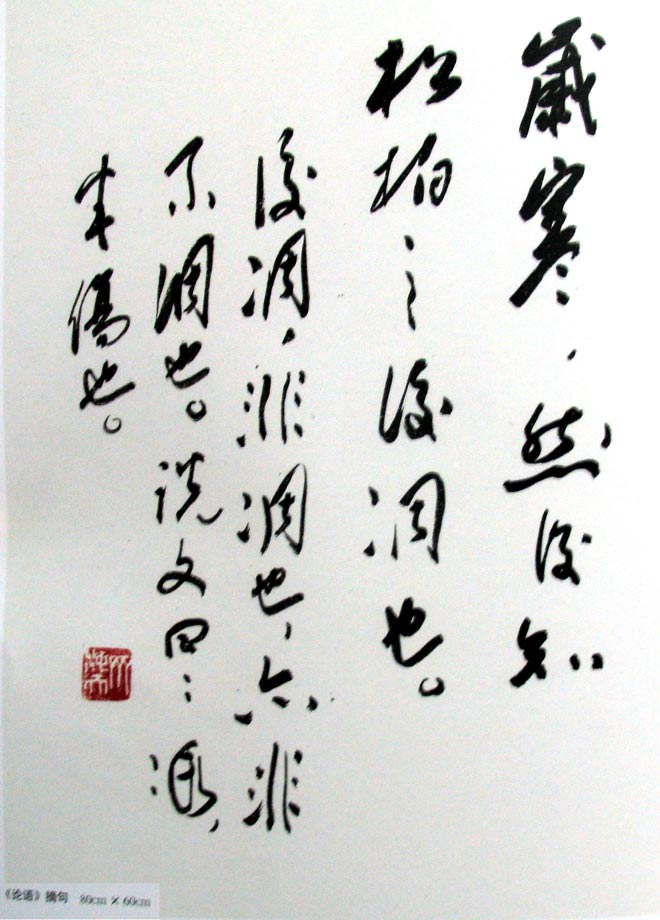 歲寒，然後知
松柏之後凋也。
後凋，非凋也，亦非
不凋也。説文曰：凋，
半傷也。
《论语》摘句 80cm × 60cm